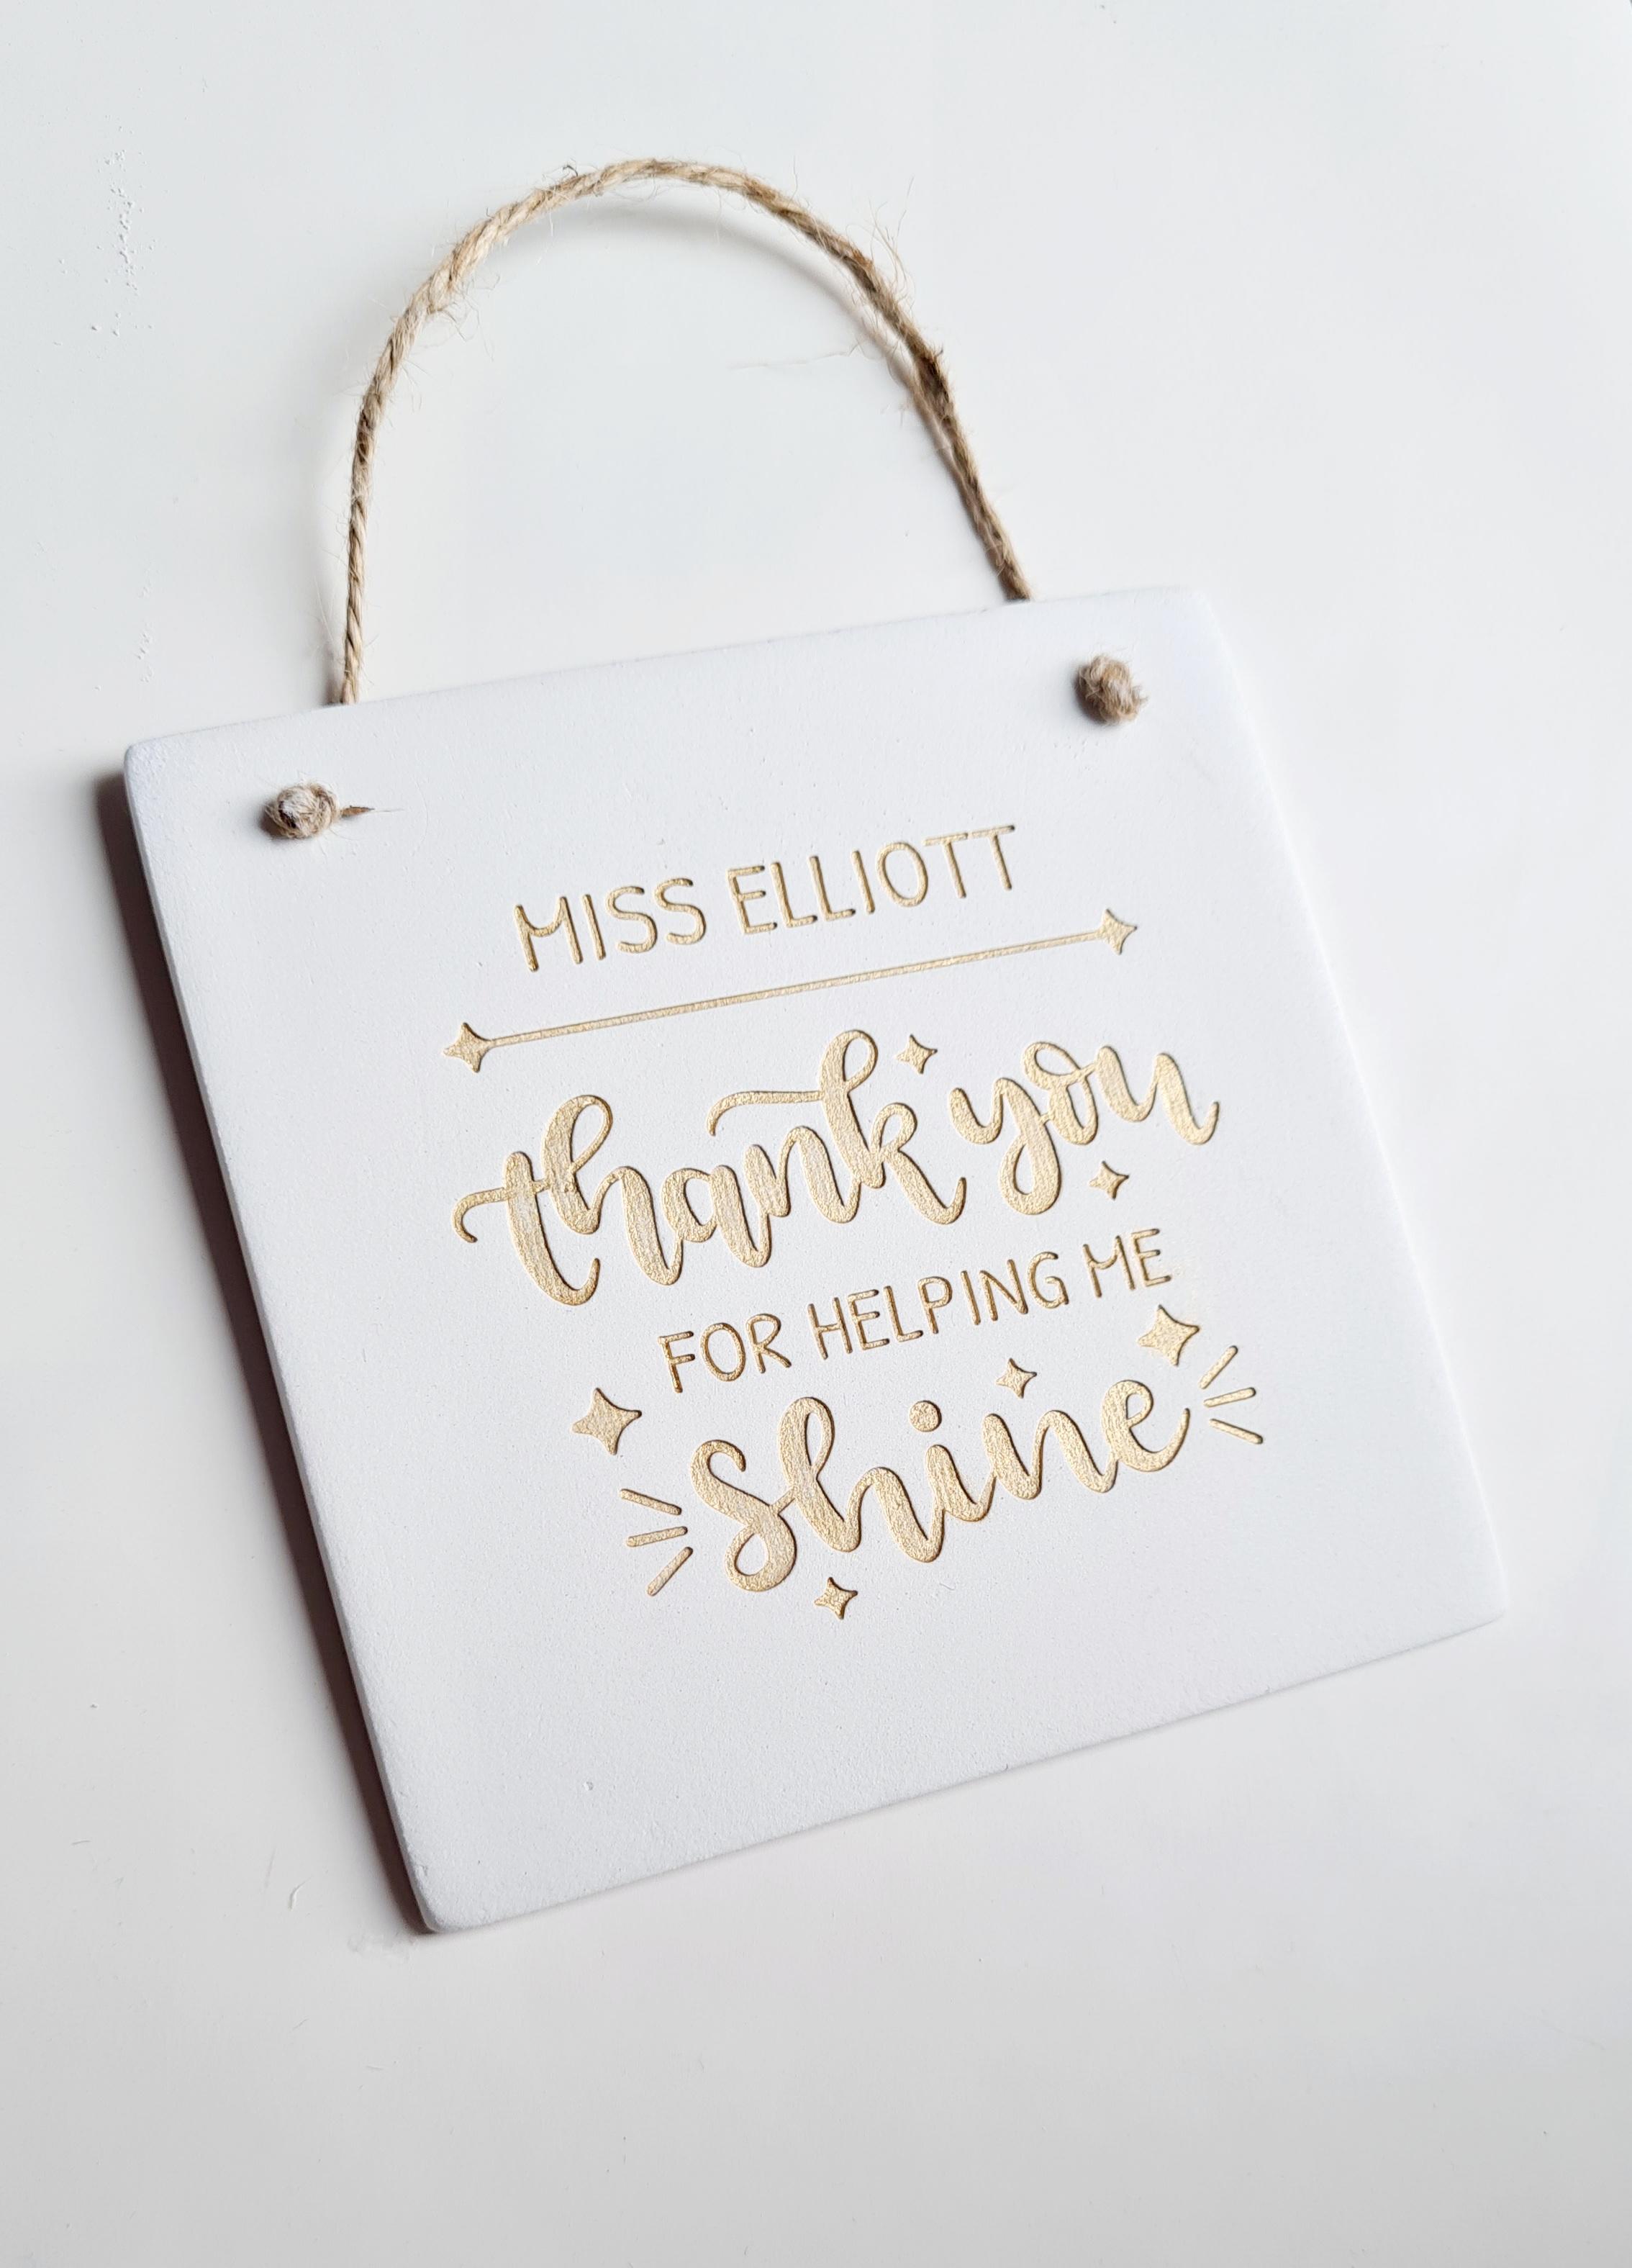 MISS ELLIOTT
thank you
FOR HELPING ME
shine